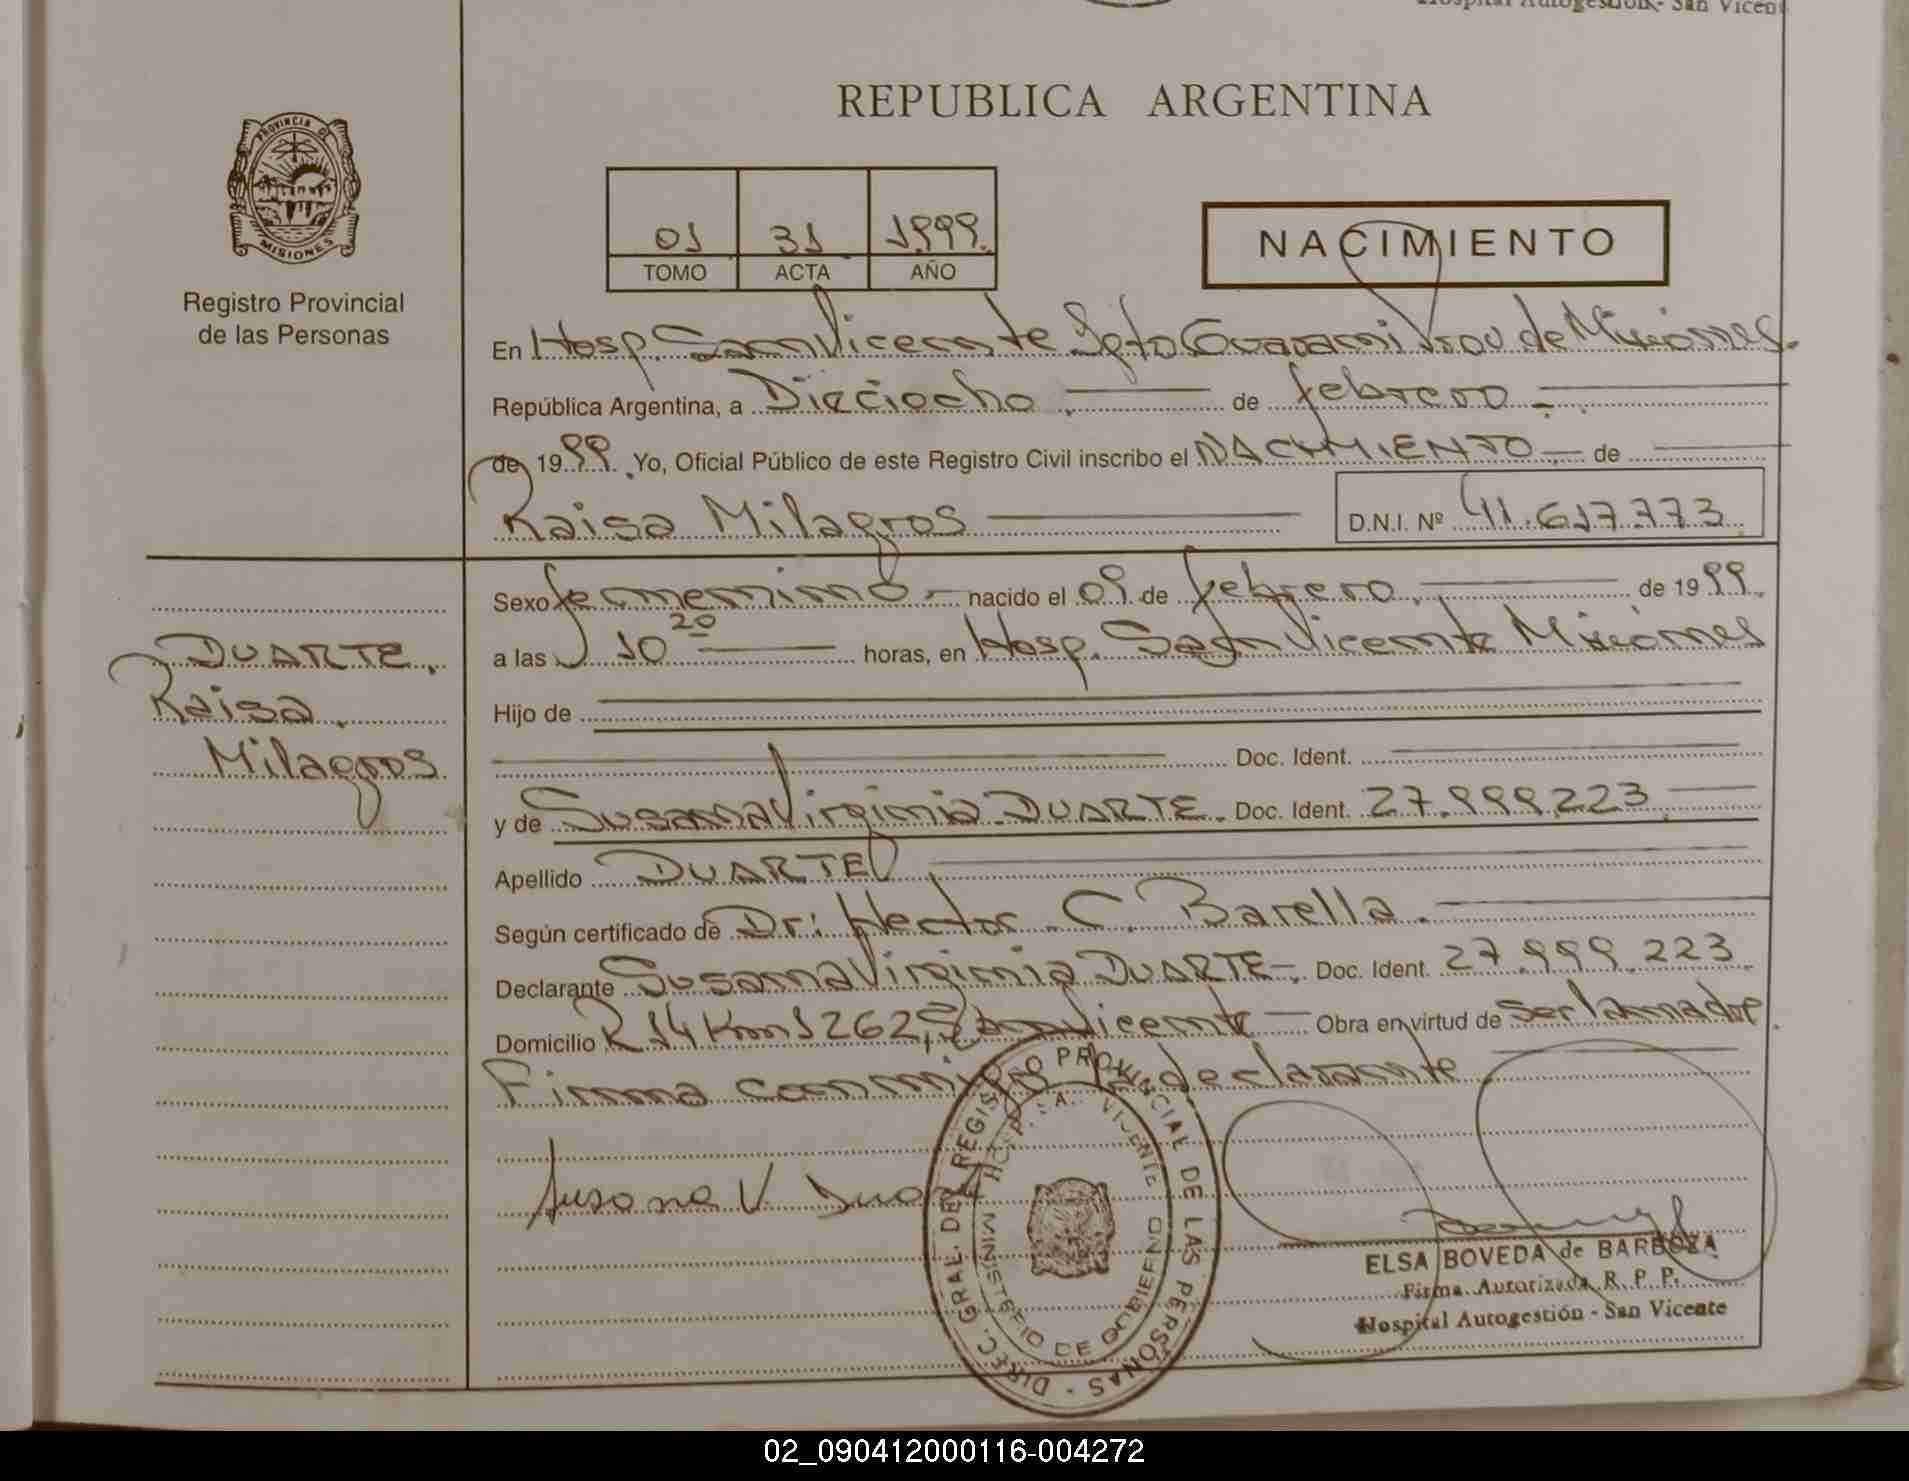 Hospital Autogestión - San Vicent
REPUBLICA ARGENTINA
PROVINCIA DE
MISIONES
Registro Provincial
de las Personas
01 31 1999.
TOMO ACTA AÑO
NACIMIENTO
En Hosp. San Vicente Dpto Guarani Prov de Misiones.
República Argentina, a Dieciocho de febrero
de 1999. Yo, Oficial Público de este Registro Civil inscribo el NACIMIENTO de
Raisa Milagros D.N.I. Nº 41.617.773
Sexo femenino nacido el 09 de febrero de 1999.
a las 10 20 horas, en Hosp. San Vicente Misiones
Hijo de
Doc. Ident.
y de Susana Virginia DUARTE. Doc. Ident. 27.999.223
Apellido DUARTE
Según certificado de Dr: Hector C. Barella.
Declarante Susana Virginia DUARTE. Doc. Ident. 27.999.223
Domicilio R 14 Km 1262, San Vicente Obra en virtud de ser la madre.
Firma conmigo la declarante
DUARTE.
Raisa.
Milagros
Susana V. Duarte
DIREC. GRAL. DEL REGISTRO PROVINCIAL DE LAS PERSONAS
HOSP. SA. VICENTE
MINISTERIO DE GOBIERNO
ELSA BOVEDA de BARBOZA
Firma Autorizada R. P. P.
Hospital Autogestión - San Vicente
02_090412000116-004272